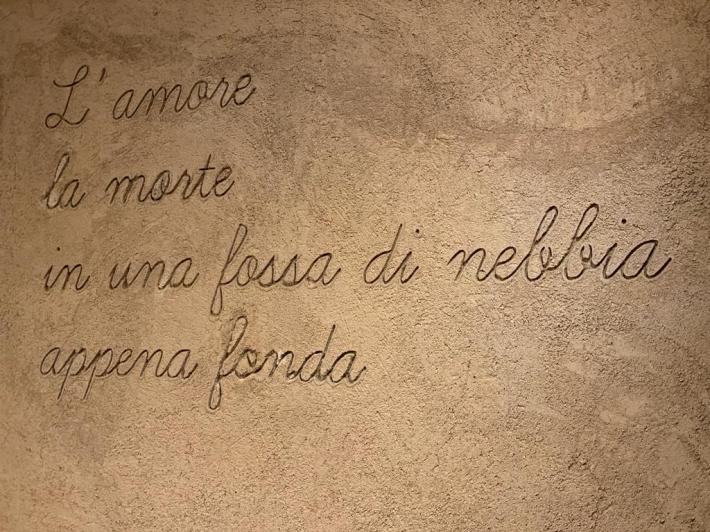 L'amore
la morte
in una fossa di nebbia
appena fonda